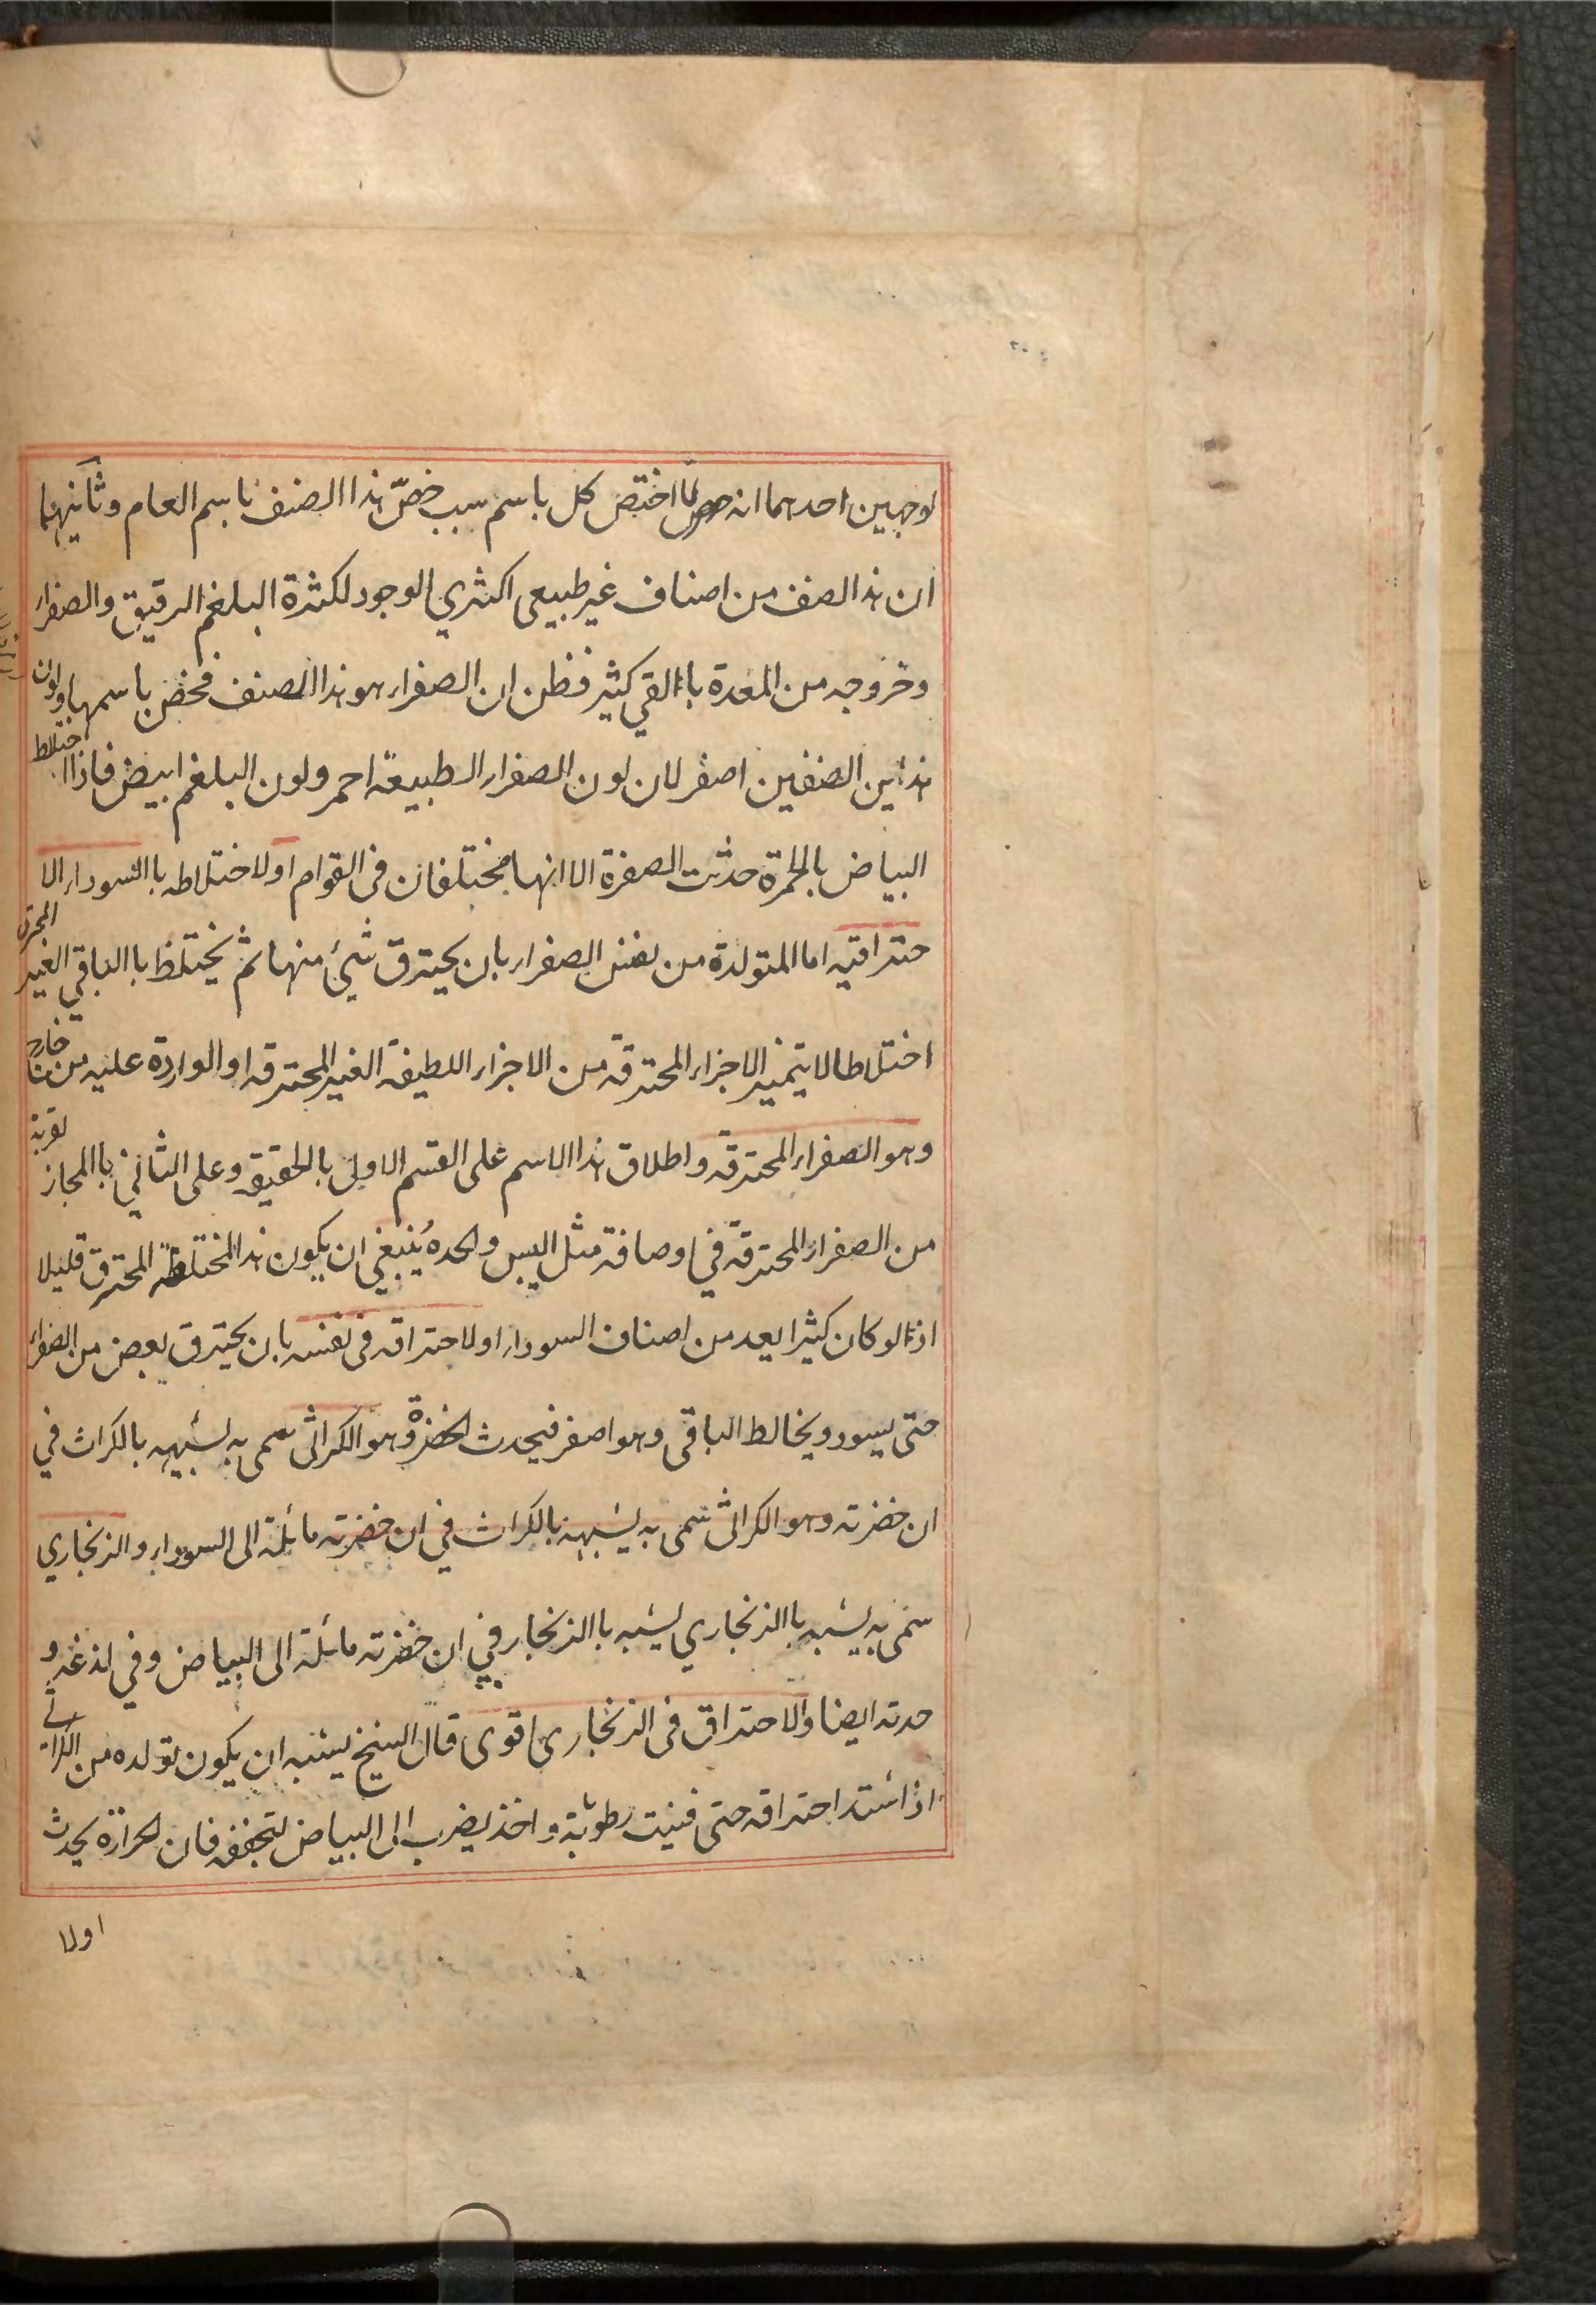 لوجهين احدهما انه لما اختص كل باسم سبب خصّ هذا الصنف باسم العام وثانيهما
ان هذا الصف من اصناف غير طبيعى اكثري الوجود لكثرة البلغم الرقيق والصفراء
وخروجه من المعدة باالقي كثير فظن ان الصفراء هو هذا الصنف فخص باسمها ولون
هذاين الصنفين اصفر لان لون الصفراء الطبيعة احمر ولون البلغم ابيض فاذا اختلط
البياض بالحمرة حدثت الصفرة الا انهما مختلفان فى القوام او لاختلاطه باالسوداء الا
حتراقيه اما المتولدة من نفس الصفراء بان يحترق شئ منها ثم يختلط باالباقي الغير المحترق
اختلاطا لا يتميز الاجزاء المحترقة من الاجزاء اللطيفة الغير المحترقه او الواردة عليه من خارج
وهو الصفراء المحترقة واطلاق هذا الاسم على القسم الاول بالحقيقه وعلى الثاني باالمجاز لقربه
من الصفراء المحترقة في اوصافة مثل اليبس والحده ينبغي ان يكون هذا المختلطه المحترق قليلا
اذ لو كان كثيرا يعد من اصناف السوداء او لاحتراقه فى نفسه بان يحترق بعض من الصفراء
حتى يسود ويخالط الباقى وهو اصفر فيحدث الخضرة وهو الكراثى سمى به لشبهه بالكراث في
ان خضرته وهو الكراثى سمى به لشبهه بالكراث في ان خضرته مائلة الى السوداء والزنجاري
سمى به لشبه باالزنجاري لشبه باالزنجار في ان خضرته مائلة الى البياض وفي لذغه و
حدته ايضا والاحتراق فى الزنجارى اقوى قال الشيخ يشبه ان يكون تولده من الكراثي
اذا اشتد احتراقه حتى فنيت رطوبته واخذ يضرب الى البياض لتجففه فان الحرارة يحدث
اولا